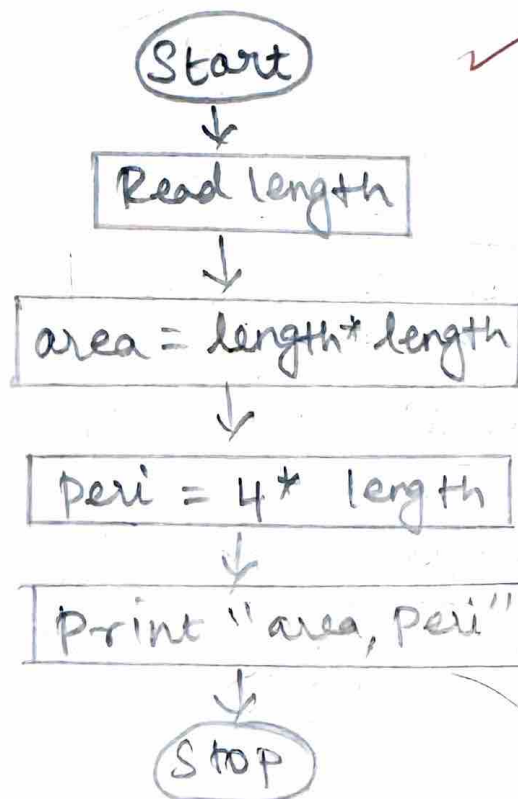 Start
Read length
area = length* length
peri = 4* length
Print "area, Peri"
Stop